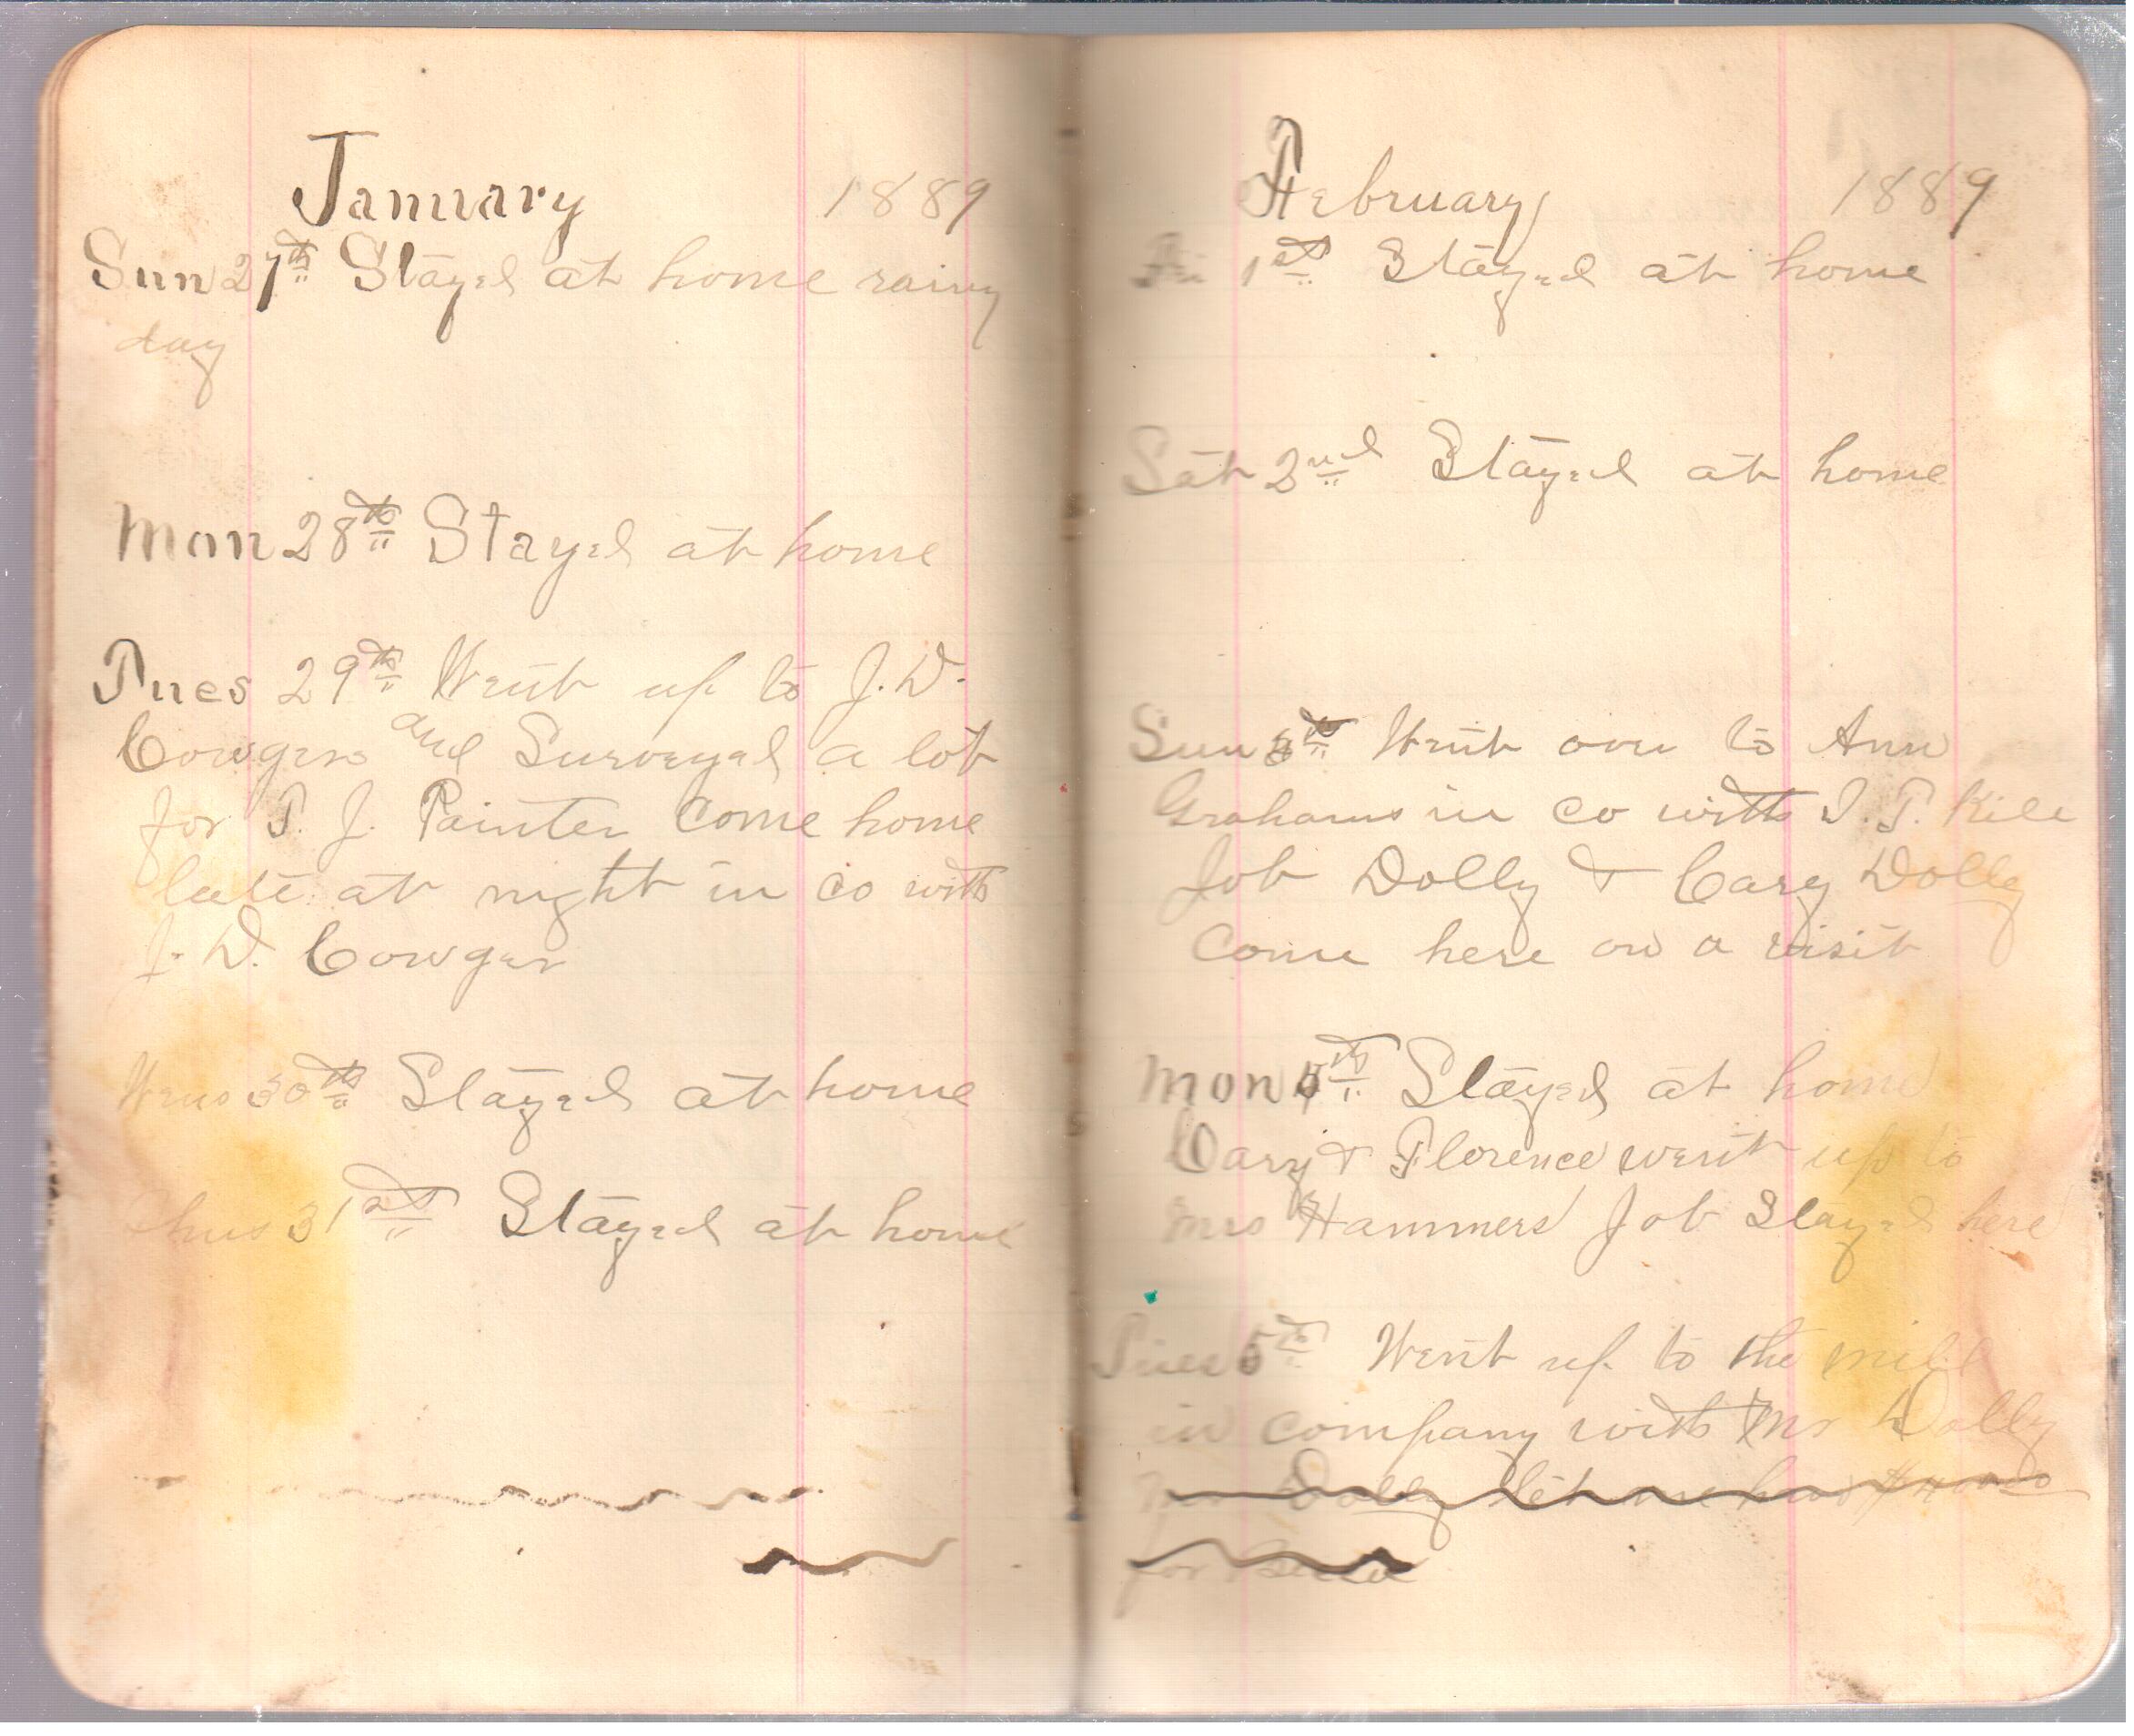 January 1889
Sun 27th Stayed at home rainy
day
Mon 28th Stayed at home
Tues 29th Went up to J. D.
Cowgers and Surveyed a lot
for P. J. Painter Come home
late at night in co with
J. D. Cowger
Wens 30th Stayed at home
Thus 31st Stayed at home
February 1889
Fri 1st Stayed at home
Sat 2nd Stayed at home
Sun 3rd Went over to Ann
Grahams in co with I. P. Kile
Job Dolly & Cary Dolly
Come here on a visit
Mon 4th Stayed at home
Cary & Florence went up to
Mrs Hammers Job Stayed here
Tues 5th Went up to the mill
in company with Mr Dolly
Mr Dolly let me have
for